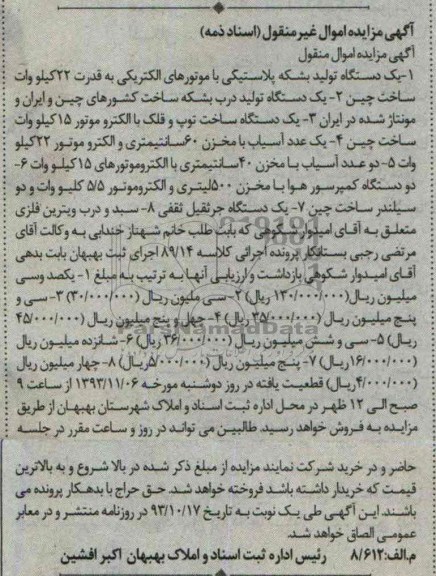 آگهی مزایده اموال غیر منقول (اسناد ذمه)
آگهی مزایده اموال منقول
۱-یک دستگاه تولید بشکه پلاستیکی با موتورهای الکتریکی به قدرت ۲۲کیلو وات
ساخت چین ۲- یک دستگاه تولید درب بشکه ساخت کشورهای چین و ایران و
مونتاژ شده در ایران ۳- یک دستگاه ساخت توپ و قلک با الکترو موتور ۱۵کیلو وات
ساخت چین ۴- یک عدد آسیاب با مخزن ۶۰سانتیمتری و الکترو موتور ۲۲کیلو
وات ۵- دو عدد آسیاب با مخزن ۴۰سانتیمتری با الکتروموتورهای ۱۵کیلو وات ۶-
دو دستگاه کمپرسور هوا با مخزن ۵۰۰لیتری و الکتروموتور ۵/۵ کلیو وات و دو
سیلندر ساخت چین ۷- یک دستگاه جرثقیل ثقفی ۸- سبد و درب ویترین فلزی
متعلق به آقای امیدوار شکوهی که بابت طلب خانم شهناز خندابی به وکالت آقای
مرتضی رجبی بستانکار پرونده اجرائی کلاسه ۸۹/۱۴ اجرای ثبت بهبهان بابت بدهی
آقای امیدوار شکوهی بازداشت و ارزیابی آنها به ترتیب به مبلغ ۱- یکصد وسی
میلیون ریال(۱۳۰/۰۰۰/۰۰۰ ریال) ۲- سی ملیون ریال (۳۰/۰۰۰/۰۰۰) ۳- سی و
پنج میلیون ریال (۳۵/۰۰۰/۰۰۰ ریال) ۴- چهل و پنج میلیون ریال (۴۵/۰۰۰/۰۰۰
ریال) ۵- سی و شش میلیون ریال (۳۶/۰۰۰/۰۰۰ ریال) ۶- شانزده میلیون ریال
(۱۶/۰۰۰/۰۰۰ریال) ۷- پنج میلیون ریال (۵/۰۰۰/۰۰۰ریال) ۸- چهار میلیون ریال
(۴/۰۰۰/۰۰۰ریال) قطعیت یافته در روز دوشنبه مورخه ۱۳۹۳/۱۱/۰۶ از ساعت ۹
صبح الی ۱۲ ظهر در محل اداره ثبت اسناد و املاک شهرستان بهبهان از طریق
مزایده به فروش خواهد رسید. طالبین می تواند در روز و ساعت مقرر در جلسه
حاضر و در خرید شرکت نمایند مزایده از مبلغ ذکر شده در بالا شروع و به بالاترین
قیمت که خریدار داشته باشد فروخته خواهد شد. حق حراج با بدهکار پرونده می
باشند. این آگهی طی یک نوبت به تاریخ ۹۳/۱۰/۱۷ در روزنامه منتشر و در معابر
عمومی الصاق خواهد شد.
م.الف:۸/۶۱۲ رئیس اداره ثبت اسناد و املاک بهبهان اکبر افشین